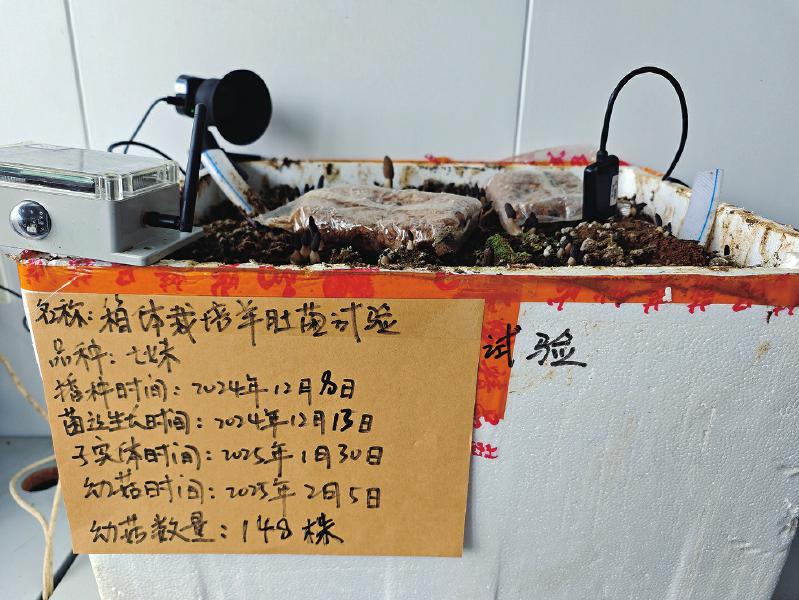 名称:箱体栽培羊肚菌试验
品种:七妹
播种时间:2024年12月8日
菌丝生长时间:2024年12月13日
子实体时间:2025年1月30日
幼菇时间:2025年2月5日
幼菇数量:148株
试验